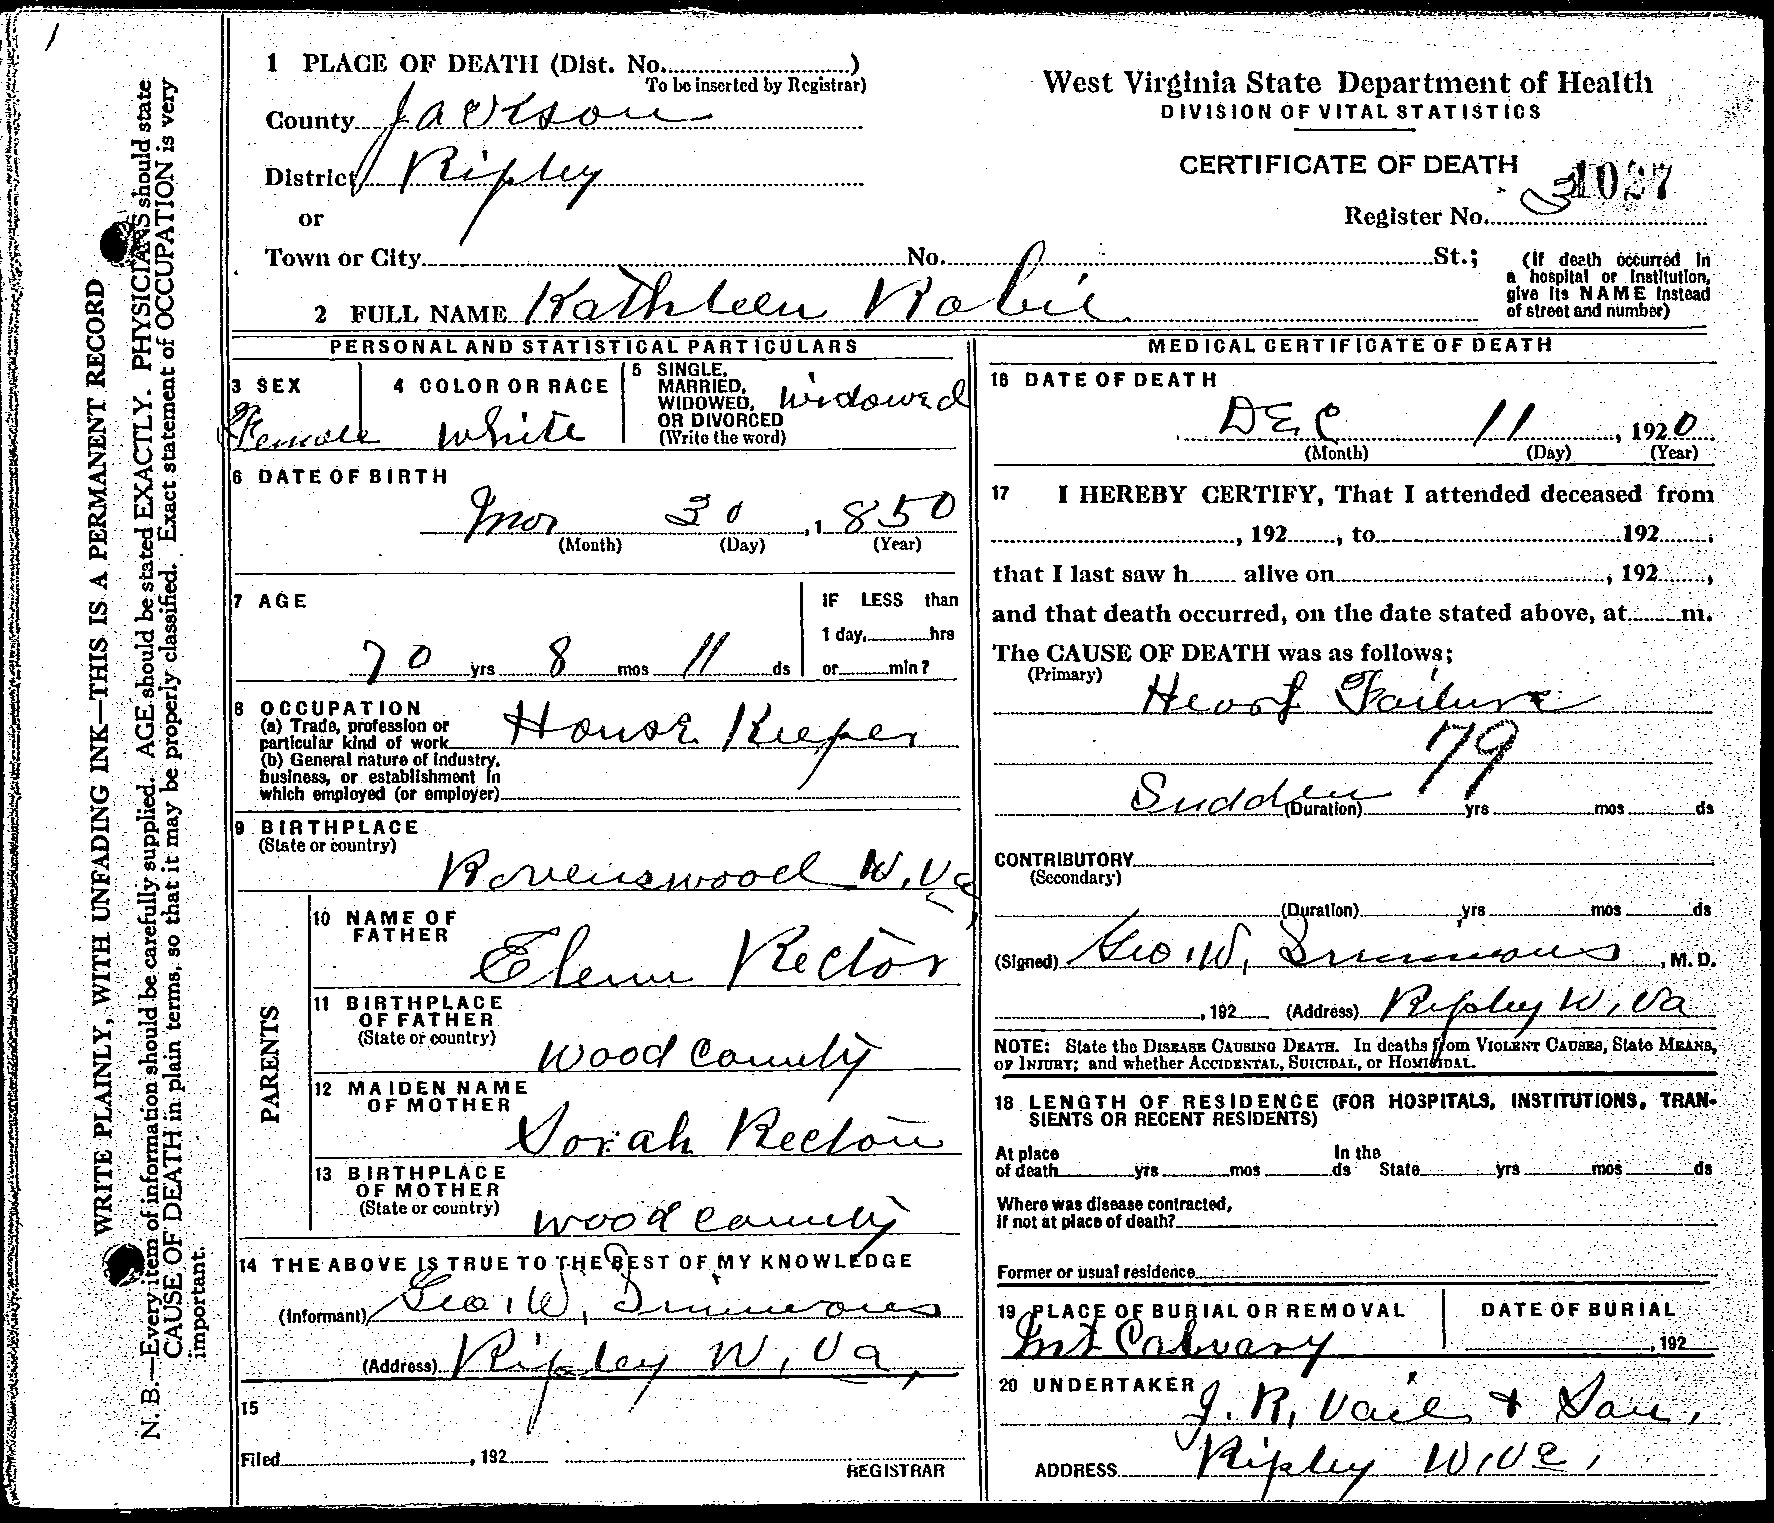 1 PLACE OF DEATH (Dist. No. )
To be inserted by Registrar)
County Jackson
District Ripley
or
Town or City No. St.;
(If death occurred in
a hospital or institution,
give its NAME instead
of street and number)
2 FULL NAME Kathleen
West Virginia State Department of Health
DIVISION OF VITAL STATISTICS
CERTIFICATE OF DEATH
Register No. 1027
PERSONAL AND STATISTICAL PARTICULARS
3 SEX
Female
4 COLOR OR RACE
White
5 SINGLE,
MARRIED,
WIDOWED,
OR DIVORCED
(Write the word)
Widowed
6 DATE OF BIRTH
Mar 30, 1850
(Month) (Day) (Year)
7 AGE
70 yrs 8 mos 11 ds
IF LESS than
1 day, hrs
or min?
8 OCCUPATION
(a) Trade, profession or
particular kind of work House Keeper
(b) General nature of industry,
business, or establishment in
which employed (or employer)
9 BIRTHPLACE
(State or country)
Ravenswood W. Va
PARENTS
10 NAME OF
FATHER
Rector
11 BIRTHPLACE
OF FATHER
(State or country)
Wood County
12 MAIDEN NAME
OF MOTHER
Sarah
13 BIRTHPLACE
OF MOTHER
(State or country)
Wood County
14 THE ABOVE IS TRUE TO THE BEST OF MY KNOWLEDGE
(Informant) Geo. W. Simmons
(Address) Ripley W. Va,
15
Filed , 192
REGISTRAR
MEDICAL CERTIFICATE OF DEATH
16 DATE OF DEATH
DEC 11, 1920
(Month) (Day) (Year)
17 I HEREBY CERTIFY, That I attended deceased from
, 192 , to 192 ,
that I last saw h alive on , 192 ,
and that death occurred, on the date stated above, at m.
The CAUSE OF DEATH was as follows;
(Primary)
Heart Failure
79
Sudden (Duration) yrs mos ds
CONTRIBUTORY
(Secondary)
(Duration) yrs mos ds
(Signed) Geo. W. Simmons, M. D.
, 192 (Address) Ripley W. Va
NOTE: State the DISEASE CAUSING DEATH. In deaths from VIOLENT CAUSES, State MEANS,
OF INJURY; and whether ACCIDENTAL, SUICIDAL, or HOMICIDAL.
18 LENGTH OF RESIDENCE (FOR HOSPITALS, INSTITUTIONS, TRAN-
SIENTS OR RECENT RESIDENTS)
At place In the
of death yrs mos ds State yrs mos ds
Where was disease contracted,
If not at place of death?
Former or usual residence
19 PLACE OF BURIAL OR REMOVAL
Mt Calvary
DATE OF BURIAL
, 192
20 UNDERTAKER
J. R. Vail & Son,
ADDRESS Ripley W. Va,
WRITE PLAINLY, WITH UNFADING INK—THIS IS A PERMANENT RECORD
N. B.—Every item of information should be carefully supplied. AGE should be stated EXACTLY. PHYSICIANS should state
CAUSE OF DEATH in plain terms, so that it may be properly classified. Exact statement of OCCUPATION is very
important.